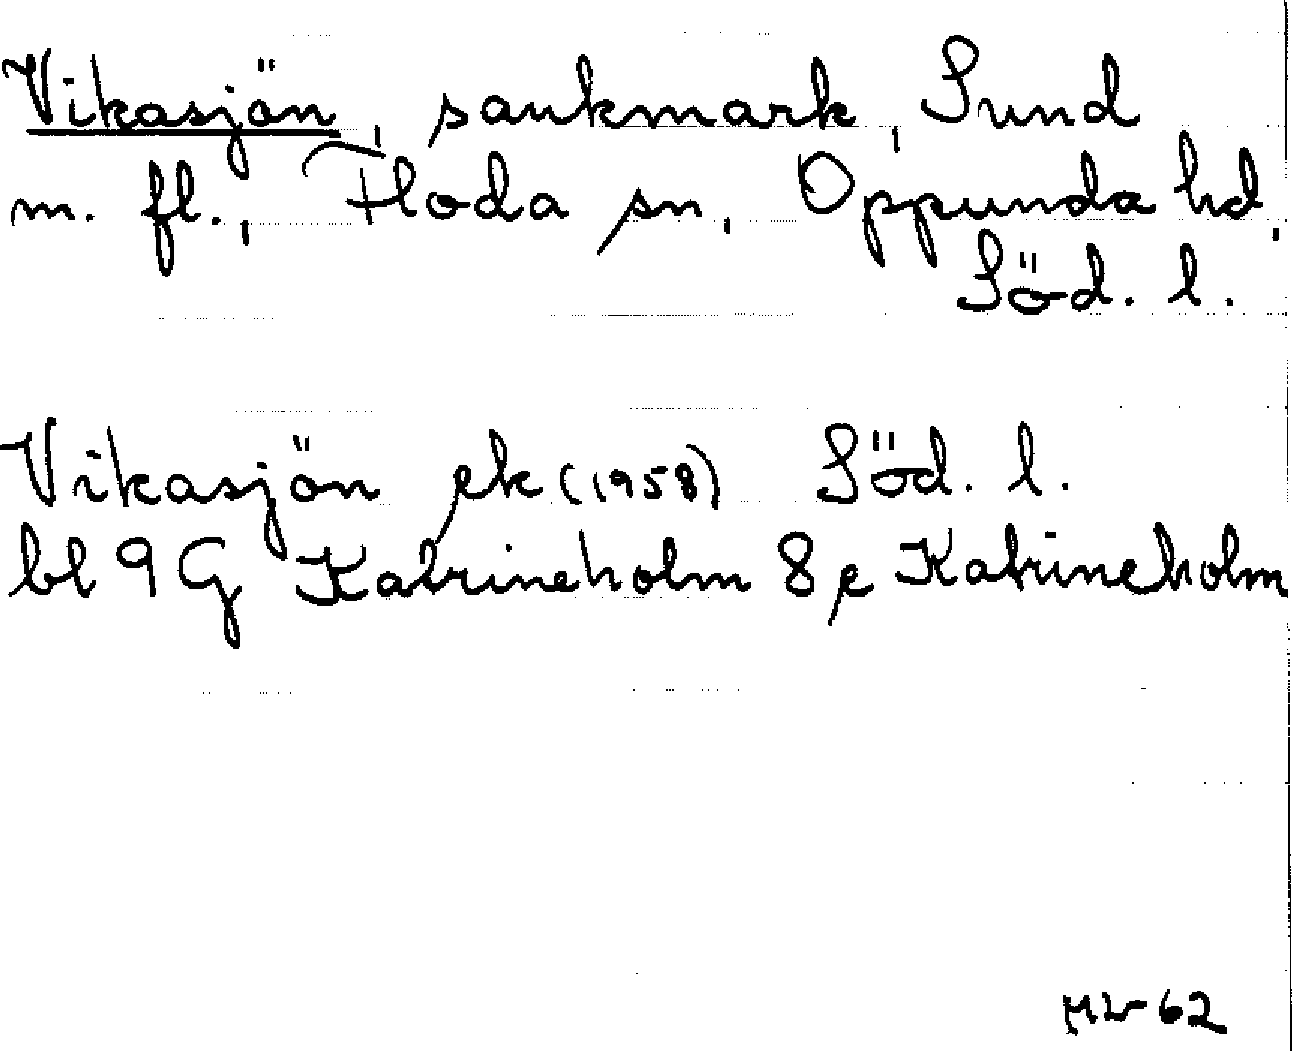 Vikasjön, sankmark, Sund
m. fl., Floda sn, Oppunda hd,
Söd. l.
Vikasjön ek (1958) Söd. l.
bl 9 G Katrineholm 8 e Katrineholm
ML-62